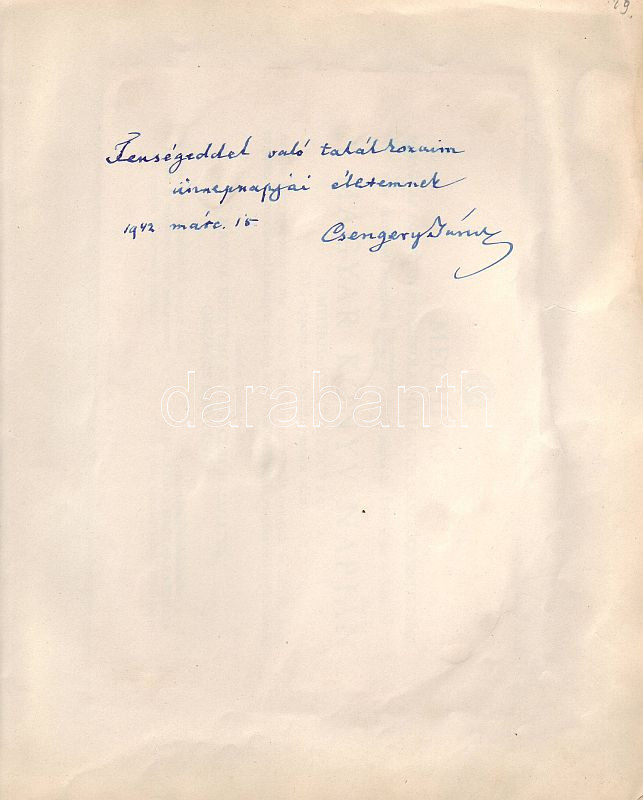 29.
Fenségeddel való találkozásaim
ünnepnapjai életemnek
1942 márc. 15
Csengery János
darabanth